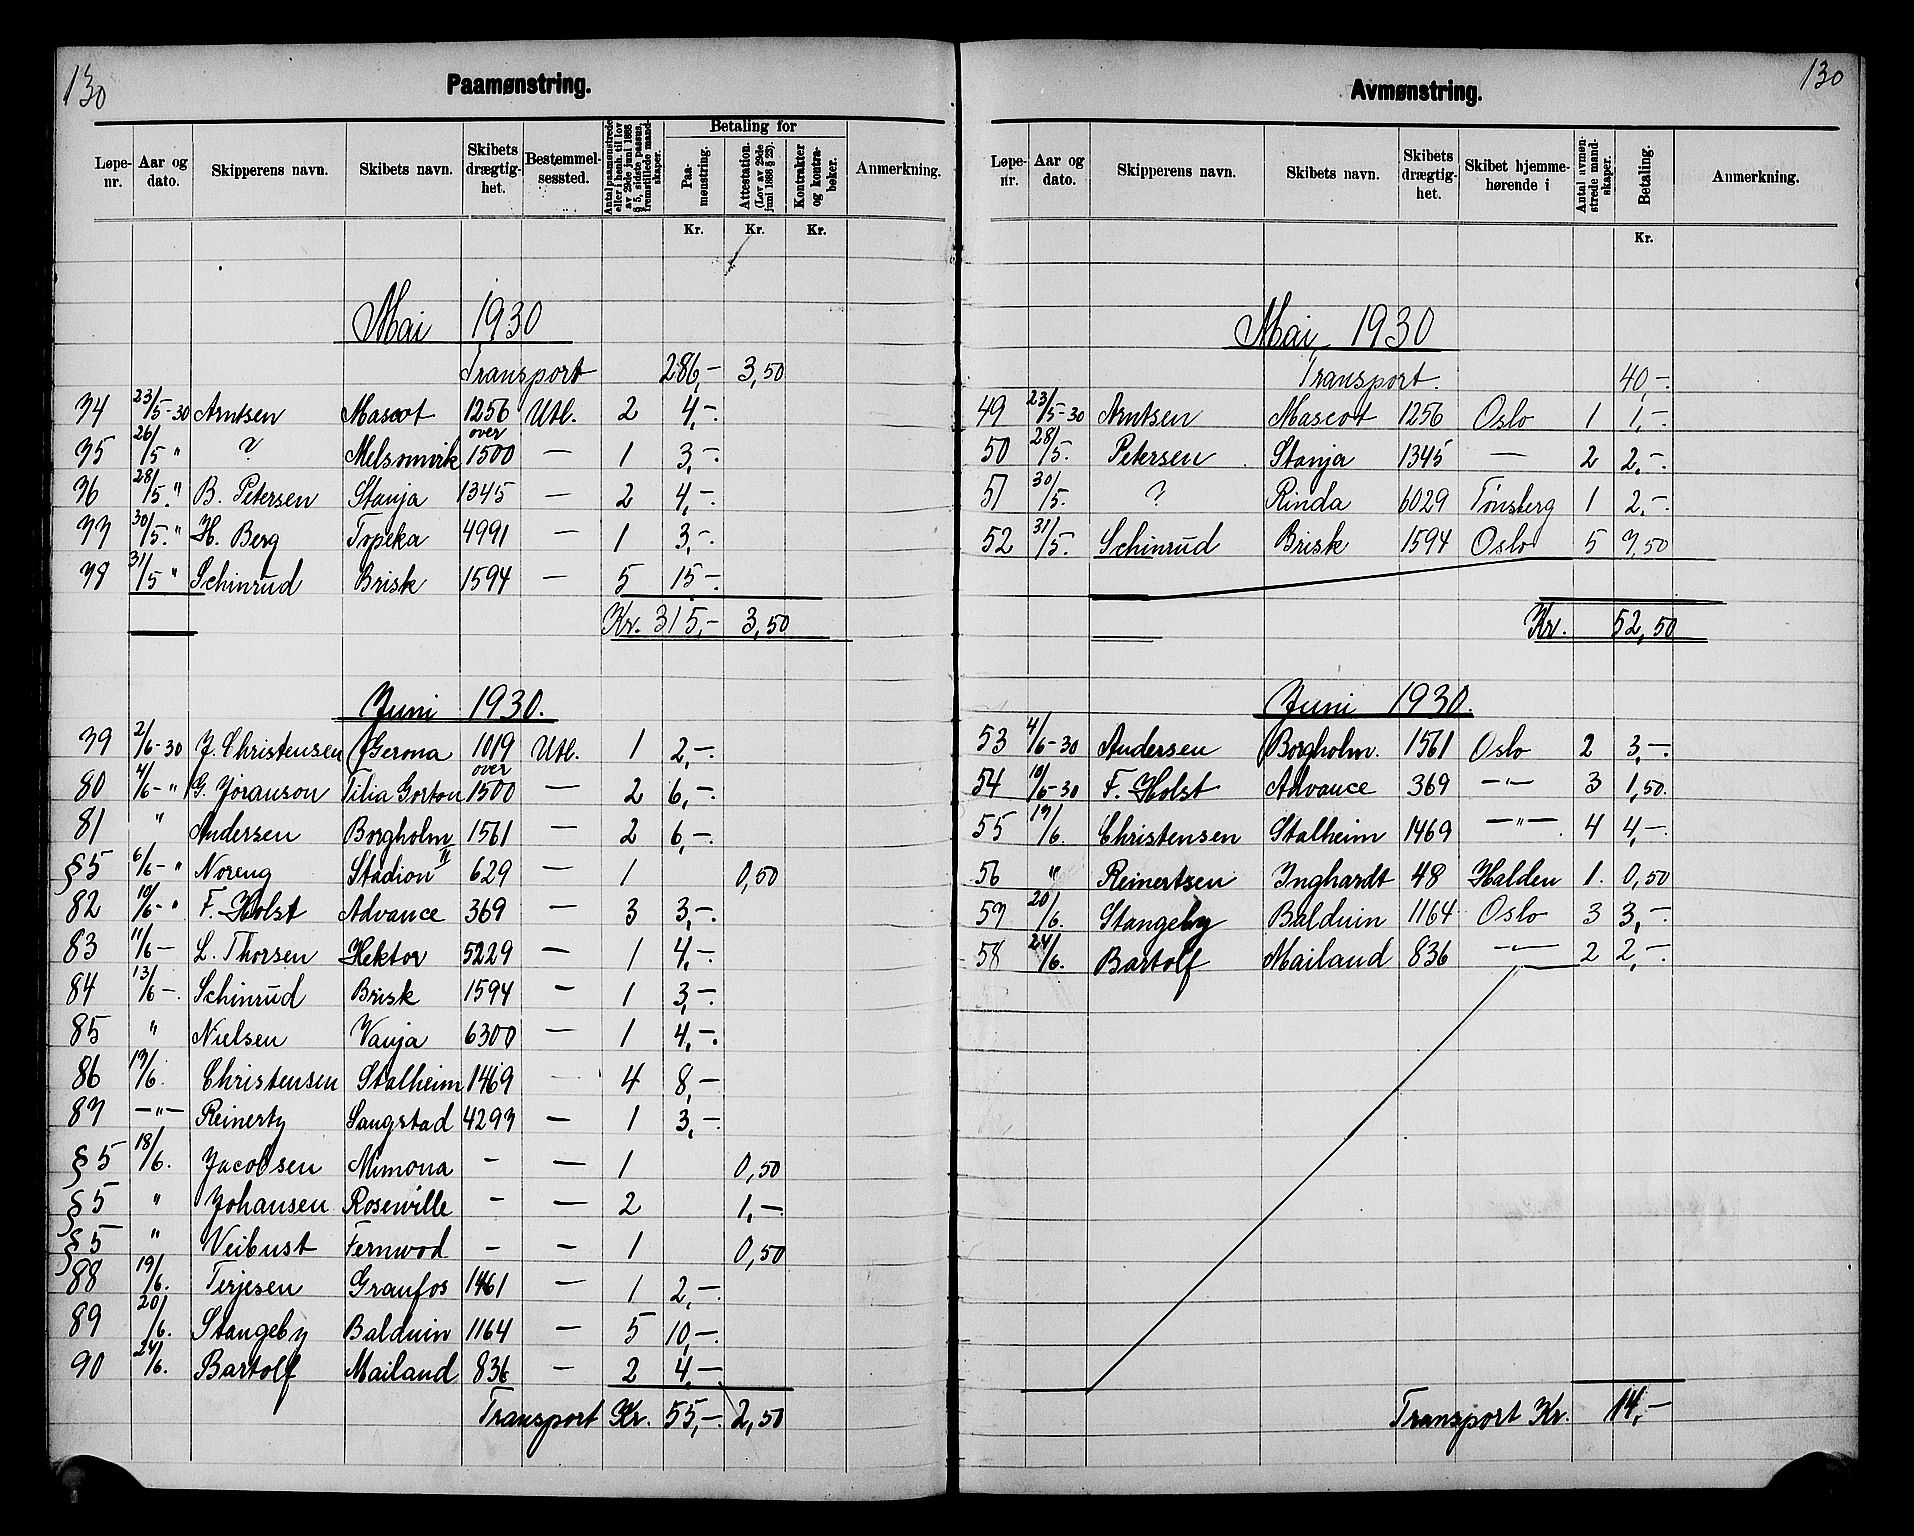 130
Paamønstring.
Løpe-nr. | Aar og dato. | Skipperens navn. | Skibets navn. | Skibets drægtighet. | Bestemmelsessted. | Antal paamønstrede eller i henh. til lov av 29de juni 1888 § 5, sidste passus, fremstillede mandskaper. | Betaling for | Paamønstring. | Attestation. (Lov av 29de juni 1888 § 23). | Kontrakter og kontrabøker. | Anmerkning.
Kr. | Kr. | Kr.
Mai 1930
Transport 286,- 3,50
74 23/5-30 Arntsen Mascot 1256 Utl. 2 4,-.
75 26/5 " ? Melsomvik over 1500 — 1 3,-.
76 28/5. " B. Petersen Stanja 1345 — 2 4,-.
77 30/5. " H. Berg Topeka 4991 — 1 3,-.
78 31/5 " Schinrud Brisk 1594 — 5 15-.
Kr. 315,- 3,50
Juni 1930.
79 2/6-30 J. Christensen Gerona 1019 Utl. 1 2,-.
80 4/6- " G. Jöranson Tilia Gorton over 1500 — 2 6,-.
81 " Andersen Borgholm 1561 — 2 6,-.
§5 6/6- " Noreng Stadion II 629 — 1 0,50
82 10/6- " F. Holst Advance 369 — 3 3,-.
83 11/6- L. Thorsen Hektor 5229 — 1 4,-.
84 13/6-. Schinrud Brisk 1594 — 1 3,-.
85 " Nielsen Vanja 6300 — 1 4,-.
86 17/6. Christensen Stalheim 1469 — 4 8,-
87 -"- Reinertz Sangstad 4297 — 1 3,-.
§5 18/6. Jacobsen Mimona - — 1 0,50
§5 " Johansen Roseville - — 2 1,-.
§5 " Veibust Fernwod - — 1 0,50
88 19/6. Terjesen Granfos 1461 — 1 2,-.
89 20/6. Stangeby Balduin 1164 — 5 10,-.
90 24/6. Bartolf Mailand 836 — 2 4,-.
Transport Kr. 55,-. 2,50
130
Avmønstring.
Løpe-nr. | Aar og dato. | Skipperens navn. | Skibets navn. | Skibets drægtighet. | Skibet hjemmehørende i | Antal avmønstrede mandskaper. | Betaling. | Anmerkning.
Kr.
Mai 1930
Transport. 40,-.
49 23/5-30 Arntsen Mascot 1256 Oslo 1 1,-.
50 28/5. Petersen Stanja 1345 — 2 2,-.
51 30/5. ? Rinda 6029 Tønsberg 1 2,-.
52 31/5. Schinrud Brisk 1594 Oslo 5 7,50
Kr. 52,50
Juni 1930.
53 4/6-30 Andersen Borgholm. 1561 Oslo 2 3,-.
54 10/6-30 F. Holst Advance 369 -"- 3 1,50.
55 17/6. Christensen Stalheim 1469 -"-. 4 4,-.
56 " Reinertsen Inghardt 48 Halden 1. 0,50
57 20/6. Stangeby Balduin 1164 Oslo 3 3,-.
58 24/6. Bartolf Mailand 836 -"- 2 2,-.
Transport Kr. 14,-